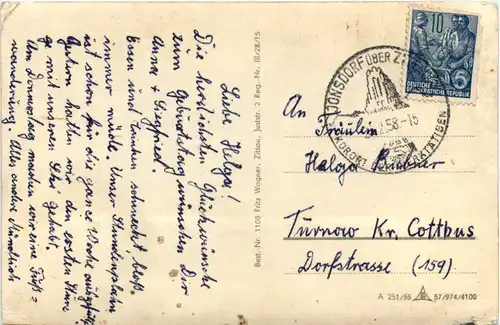 Liebe Helga!
Die herzlichsten Glückwünsche
zum Geburtstag wünschen Dir
Anna + Siegfried
Essen und Trinken schmeckt bloß
immer müde. Unser Stundenplan
ist schon für die ganze Woche ausgefüllt
Gestern hatten wir den ersten
ge mit unseren Skr gehabt.
Am Donnerstag machen wir eine Fuß=
wanderung. Alles andere Mündlich
Best.-Nr. 1108 Fritz Wagner, Zittau, Juststr. 2 Reg.-Nr. III/28/15
10
DEUTSCHE
DEMOKRATISCHE REPUBLIK
JONSDORF ÜBER
2.58.-15
KURORT
An Fräulein
Helga
Turnow Kr. Cottbus
Dorfstrasse (159)
A 251/55 57/974/4100